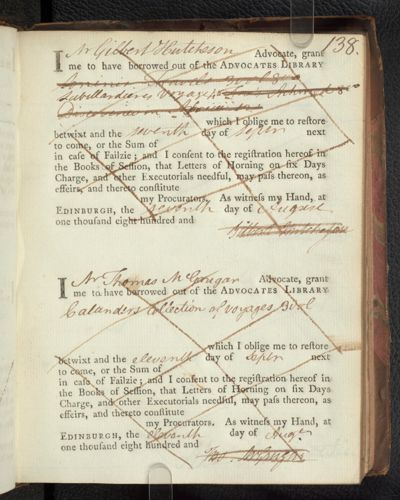 138.
I Mr Gilbert Hutcheson Advocate, grant
me to have borrowed out of the ADVOCATES LIBRARY
Labillardiere's Voyage
which I oblige me to restore
betwixt and the seventh day of Septr next
to come, or the Sum of
in case of Failzie; and I consent to the registration hereof in
the Books of Session, that Letters of Horning on six Days
Charge, and other Executorials needful, may pass thereon, as
effeirs, and thereto constitute
my Procurators. As witness my Hand, at
EDINBURGH, the seventh day of August
one thousand eight hundred and
Gilbert Hutcheson
I Mr Thomas McGrugar Advocate, grant
me to have borrowed out of the ADVOCATES LIBRARY
Calanders Collection of voyages 3 vol
which I oblige me to restore
betwixt and the eleventh day of Septr next
to come, or the Sum of
in case of Failzie; and I consent to the registration hereof in
the Books of Session, that Letters of Horning on six Days
Charge, and other Executorials needful, may pass thereon, as
effeirs, and thereto constitute
my Procurators. As witness my Hand, at
EDINBURGH, the eleventh day of Augt
one thousand eight hundred and
Tho. McGrugar